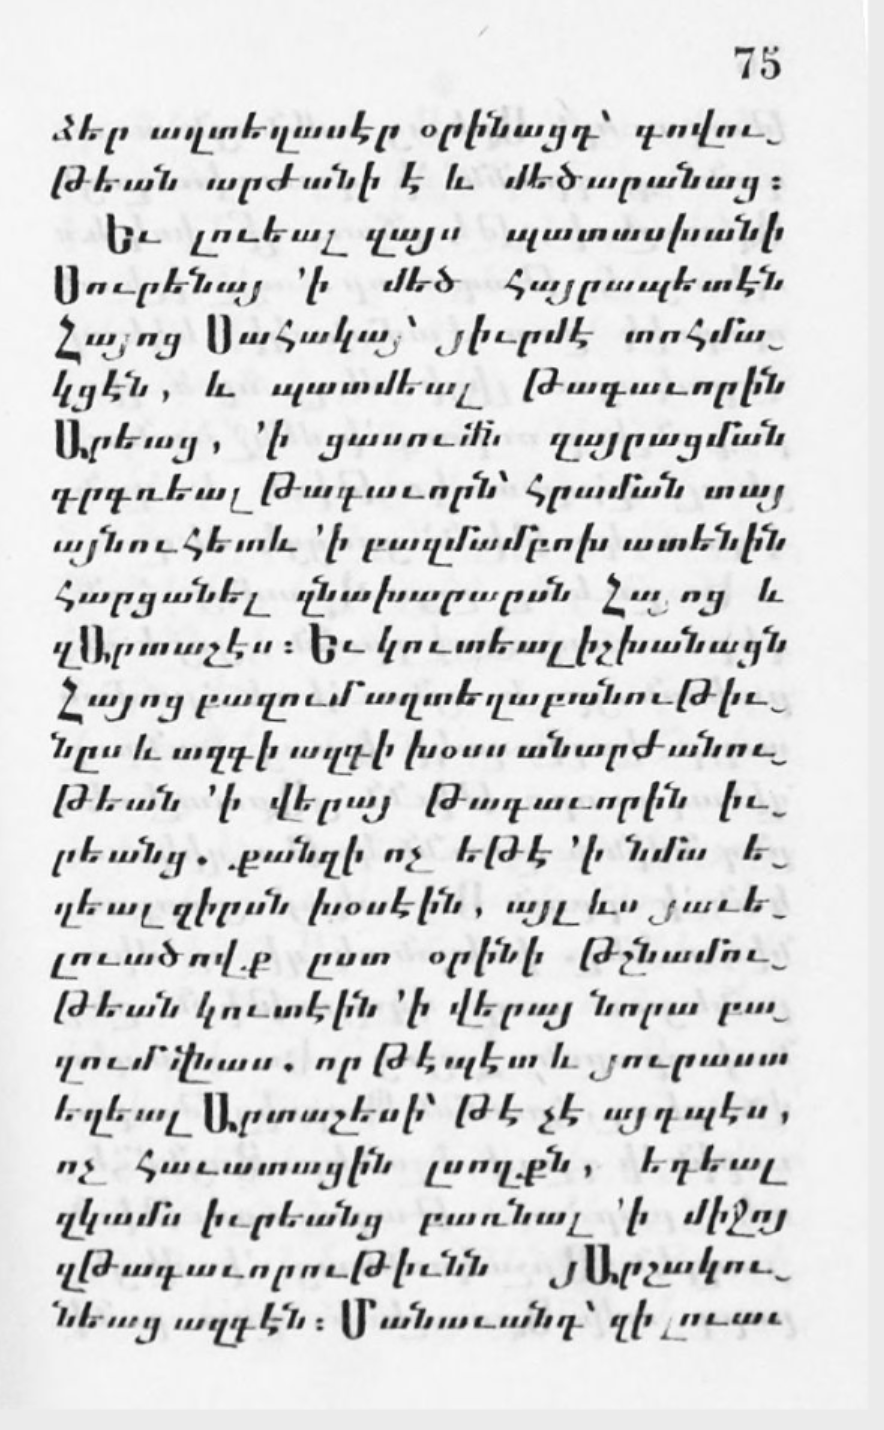 75
ձեր աղտեղասէր օրինացդ՝ գովու֊
թեան արժանի է և մեծարանաց։
Եւ լուեալ զայս պատասխանի
Սուրենայ ՚ի մեծ Հայրապետէն
Հայոց Սահակայ՝ յիւրմէ տոհմա֊
կցէն, և պատմեալ թագաւորին
Արեաց, ՚ի ցասումն զայրացման
գրգռեալ թագաւորն՝ հրաման տայ
այնուհետև ՚ի բազմամբոխ ատենին
հարցանել զնախարարսն Հայոց և
զԱրտաշէս։ Եւ կուտեալ իշխանացն
Հայոց բազում աղտեղաբանութիւ֊
նըս և ազգի ազգի խօսս անարժանու֊
թեան ՚ի վերայ թագաւորին իւ֊
րեանց. քանզի ոչ եթէ ՚ի նմա ե֊
ղեալ զիրսն խօսէին, այլ ևս յաւե֊
լուածովք ըստ օրինի թշնամու֊
թեան կուտէին ՚ի վերայ նորա բա֊
զում վնաս. որ թէպէտ և յուրաստ
եղեալ Արտաշեսի՝ թէ չէ այդպէս,
ոչ հաւատացին լսողքն, եդեալ
զկամս իւրեանց բառնալ ՚ի միջոյ
զթագաւորութիւնն յԱրշակու֊
նեաց ազգէն։ Մանաւանդ՝ զի լուաւ